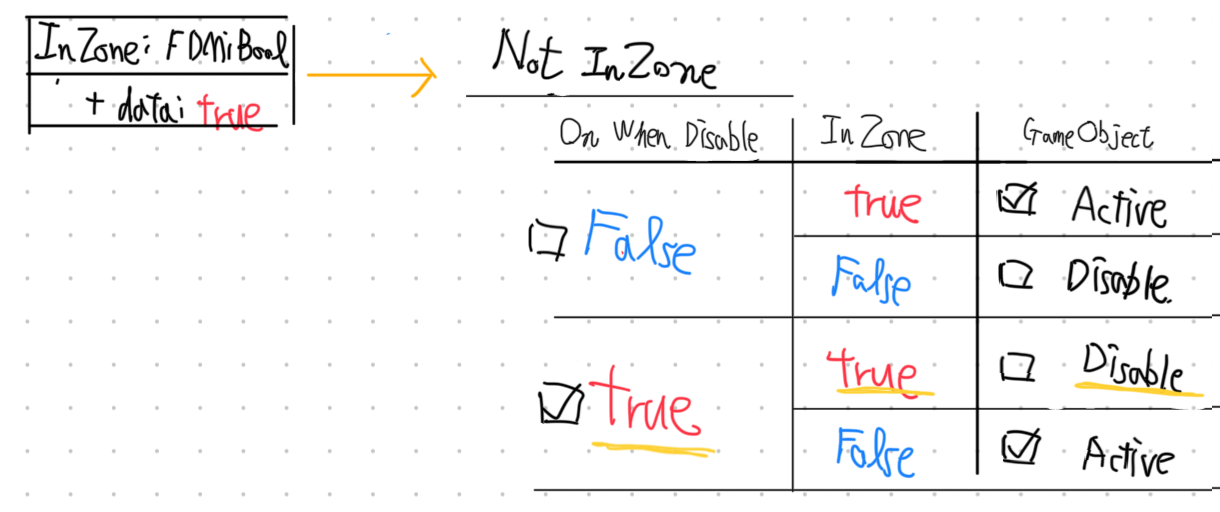 InZone: FDMiBool
+ data: true
Not InZone
On When Disable InZone GameObject
False true Active
False Disable.
true true Disable
False Active